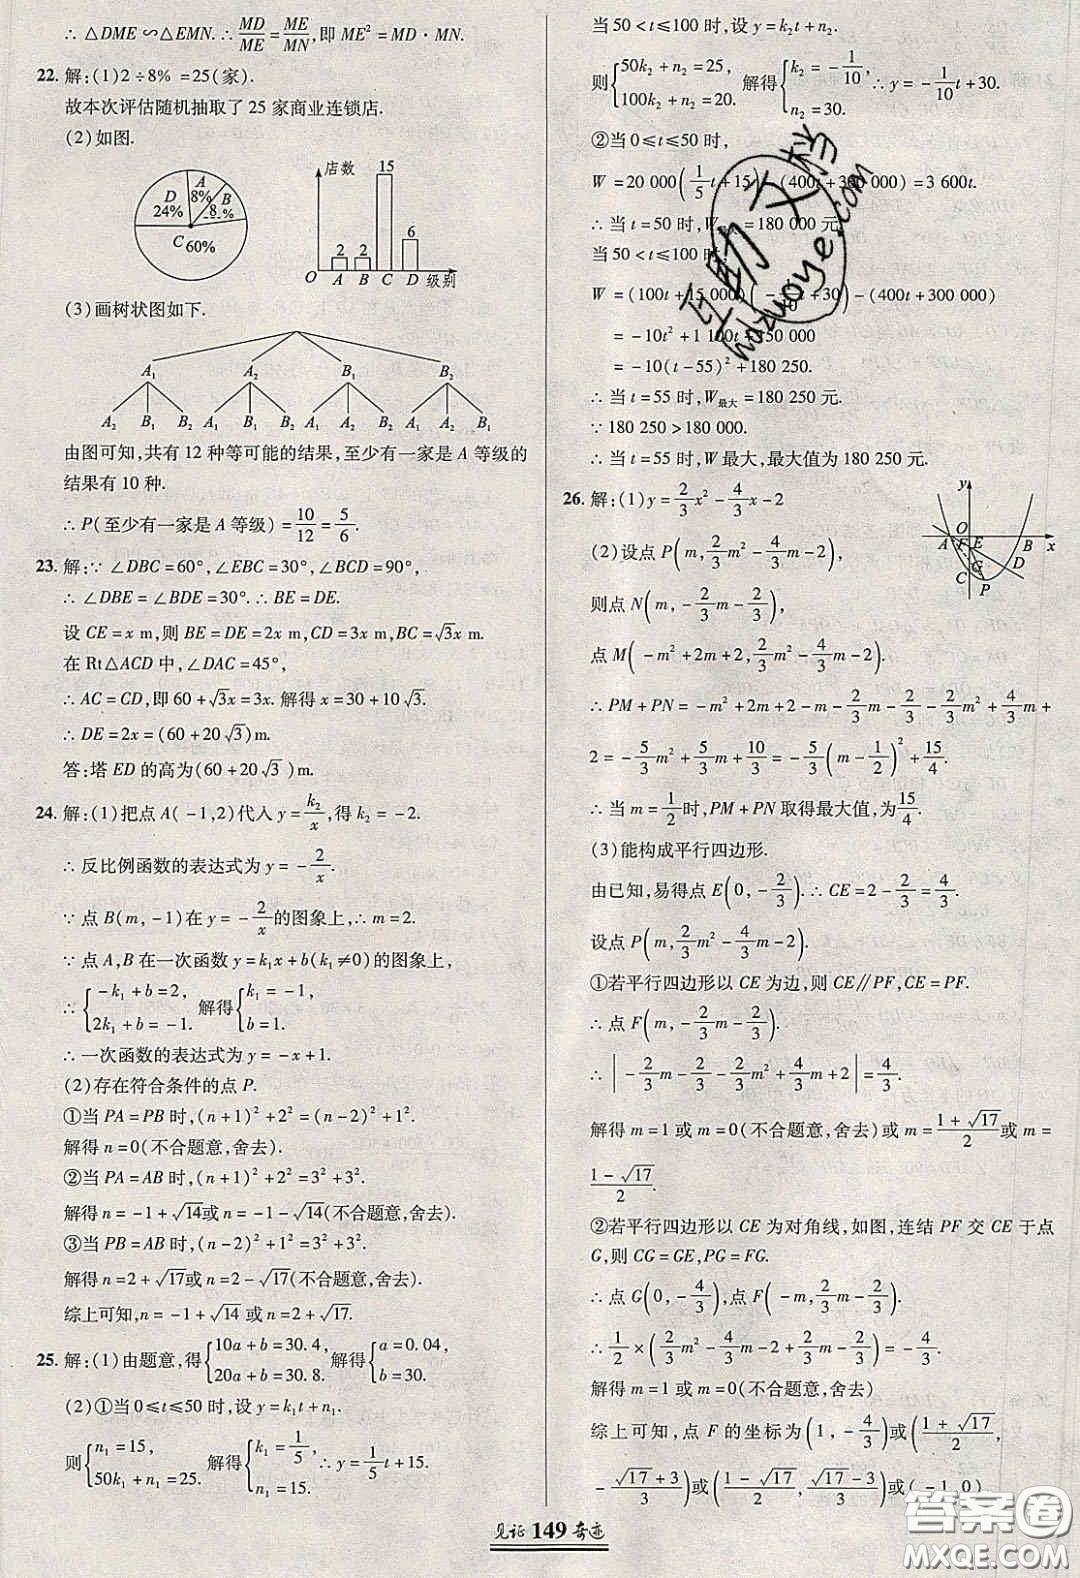 ∴ △DME∽△EMN. ∴ MD/ME = ME/MN, 即 ME² = MD·MN.
22. 解:(1)2÷8% =25(家).
故本次评估随机抽取了 25 家商业连锁店.
(2)如图.
A 8%
B
D 24%
C 60%
店数
15
2 2 6
O A B C D 级别
(3)画树状图如下.
A₁ A₂ B₁ B₂
A₂ B₁ B₂ A₁ B₁ B₂ A₁ A₂ B₂ A₁ A₂ B₁
由图可知,共有 12 种等可能的结果,至少有一家是 A 等级的
结果有 10 种.
∴ P(至少有一家是 A 等级) = 10/12 = 5/6.
23. 解:∵ ∠DBC=60°,∠EBC=30°,∠BCD=90°,
∴ ∠DBE=∠BDE=30°. ∴ BE=DE.
设 CE=x m,则 BE=DE=2x m,CD=3x m,BC=√3x m.
在 Rt△ACD 中,∠DAC=45°,
∴ AC=CD,即 60+√3x=3x. 解得 x=30+10√3.
∴ DE=2x=(60+20√3)m.
答:塔 ED 的高为(60+20√3)m.
24. 解:(1)把点 A(-1,2)代入 y=k₂/x,得 k₂=-2.
∴ 反比例函数的表达式为 y=-2/x.
∵ 点 B(m,-1)在 y=-2/x的图象上,∴ m=2.
∵ 点 A,B 在一次函数 y=k₁x+b(k₁≠0)的图象上,
∴ {-k₁+b=2, 2k₁+b=-1. 解得{k₁=-1, b=1.
∴ 一次函数的表达式为 y=-x+1.
(2)存在符合条件的点 P.
①当 PA=PB 时,(n+1)²+2²=(n-2)²+1².
解得 n=0(不合题意,舍去).
②当 PA=AB 时,(n+1)²+2²=3²+3².
解得 n=-1+√14或 n=-1-√14(不合题意,舍去).
③当 PB=AB 时,(n-2)²+1²=3²+3².
解得 n=2+√17或 n=2-√17(不合题意,舍去).
综上可知,n=-1+√14 或 n=2+√17.
25. 解:(1)由题意,得{10a+b=30.4, 20a+b=30.8. 解得{a=0.04, b=30.
(2)①当 0≤t≤50 时,设 y=k₁t+n₁.
则{n₁=15, 50k₁+n₁=25. 解得{k₁=1/5, n₁=15. ∴ y=1/5t+15.
当 50<t≤100 时,设 y=k₂t+n₂.
则{50k₂+n₂=25, 100k₂+n₂=20. 解得{k₂=-1/10, n₂=30. ∴ y=-1/10t+30.
②当 0≤t≤50 时,
W=20 000(1/5t+15)-(400t+300 000)=3 600t.
∴ 当 t=50 时,W =180 000 元.
当 50<t≤100 时,
W=(100t+15 000)(-1/10t+30)-(400t+300 000)
=-10t²+1 100t+150 000
=-10(t-55)²+180 250.
∴ 当 t=55 时,W最大=180 250 元.
∵ 180 250>180 000.
∴ 当 t=55 时,W 最大,最大值为 180 250 元.
26. 解:(1)y=2/3x²-4/3x-2
y
O
A F E B x
G D
C P
(2)设点 P(m,2/3m²-4/3m-2),
则点 N(m,-2/3m-2/3),
点 M(-m²+2m+2,2/3m²-4/3m-2).
∴ PM+PN=-m²+2m+2-2/3m-2/3-2/3m²+4/3m+
2=-5/3m²+5/3m+10/3=-5/3(m-1/2)²+15/4.
∴ 当 m=1/2时,PM+PN 取得最大值,为15/4.
(3)能构成平行四边形.
由已知,易得点 E(0,-2/3). ∴ CE=2-2/3=4/3.
设点 P(m,2/3m²-4/3m-2).
①若平行四边形以 CE 为边,则 CE∥PF,CE=PF.
∴ 点 F(m,-2/3m-2/3).
∴ |-2/3m-2/3-2/3m²+4/3m+2|=4/3.
解得 m=1 或 m=0(不合题意,舍去)或 m=(1+√17)/2或 m=
(1-√17)/2.
②若平行四边形以 CE 为对角线,如图,连结 PF 交 CE 于点
G,则 CG=GE,PG=FG.
∴ 点 G(0,-4/3),点 F(-m,2/3m-2/3).
∴ 1/2×(2/3m²-4/3m-2+2/3m-2/3)=-4/3.
解得 m=1 或 m=0(不合题意,舍去)
综上可知,点 F 的坐标为(1,-4/3)或((1+√17)/2,
-(√17+3)/3)或((1-√17)/2,(√17-3)/3)或(-1,0)
见证 149 奇迹
互助文档
hdzuoye.com
答案圈
MXQE.COM